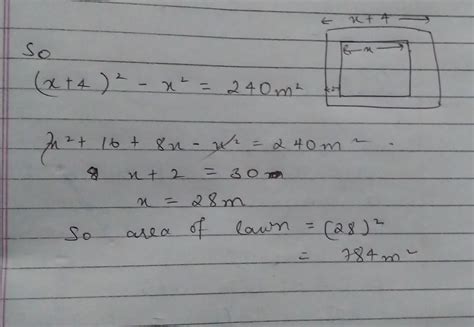 ← x+4 →
← x →
So
(x+4)² - x² = 240m²
x² + 16 + 8x - x² = 240m²
x + 2 = 30m
x = 28m
So area of lawn = (28)²
= 784m²